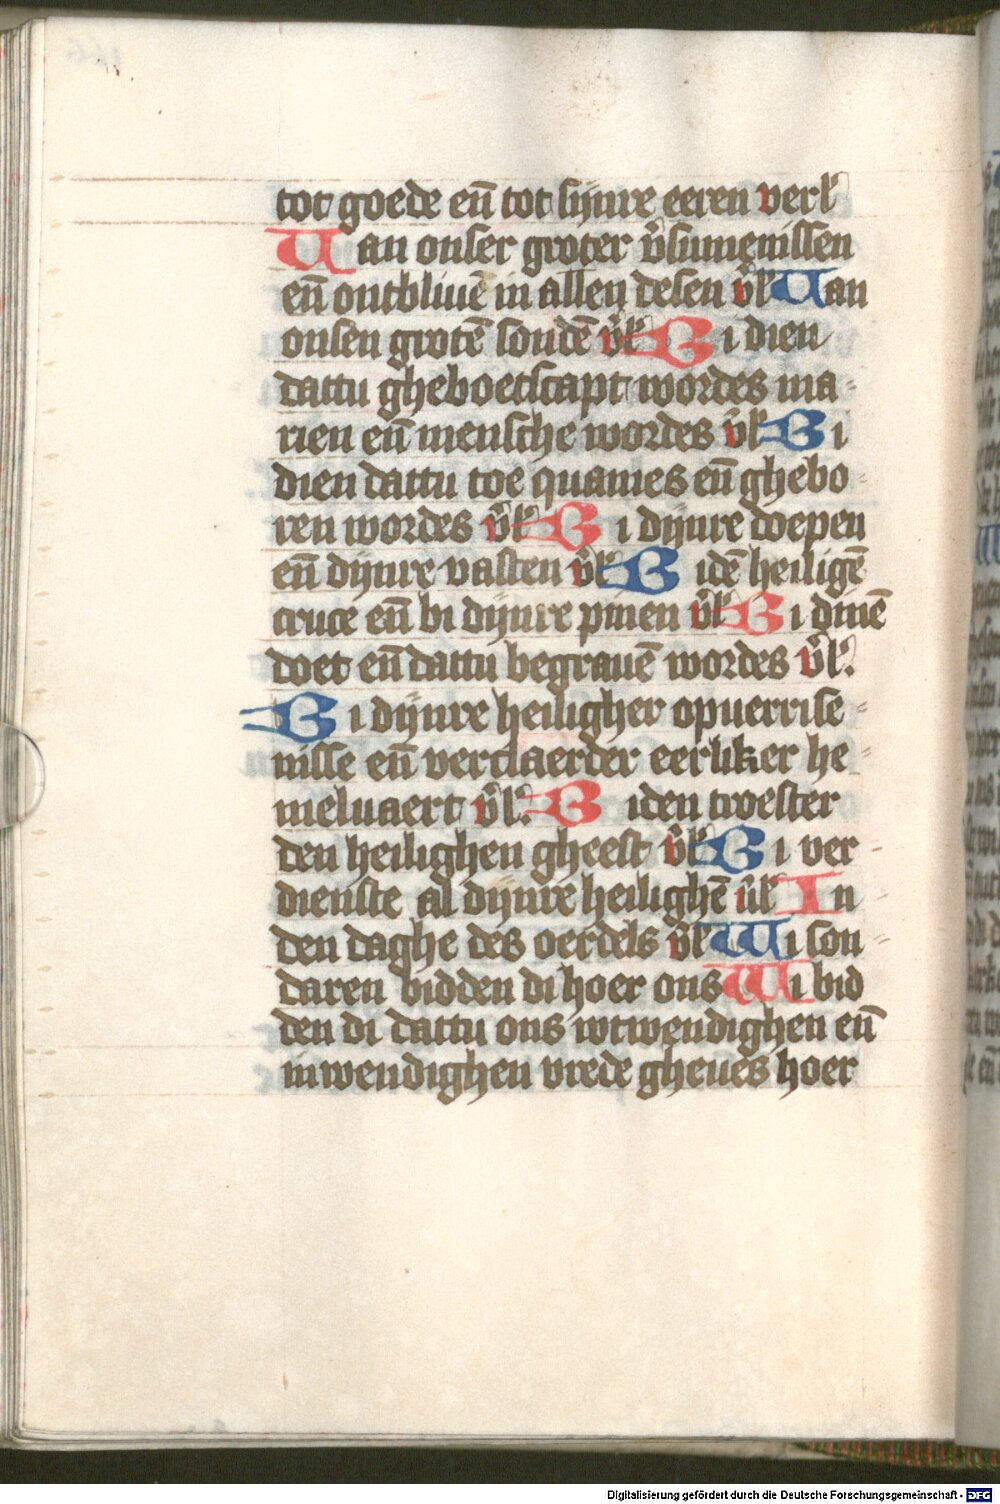 tot goede en̄ tot sijnre eeren verl'
Uan onser groter v̓sumenissen
en̄ ontbliuē in allen desen v̓l' Uan
onsen grotē sondē v̓l' Bi dien
dattu gheboetscapt wordes ma-
rien en̄ mensche wordes v̓l' Bi
dien dattu toe quames en̄ ghebo-
ren wordes v̓l' Bi dijnre doepen
en̄ dijnre vasten v̓l' Bi dē heiligē
cruce en̄ bi dijnre pinen v̓l' Bi dinē
doet en̄ dattu begrauē wordes v̓l'.
Bi dijnre heiligher opuerrise-
nisse en̄ verclaerder eerliker he-
meluaert v̓l'. Bi den troester
den heilighen gheest v̓l' Bi ver-
dienste al dijnre heilighē v̓l' In
den daghe des oerdels v̓l' Wi son-
daren bidden di hoer ons Wi bid
den di dattu ons wtwendighen en̄
inwendighen vrede gheues hoer
Digitalisierung gefördert durch die Deutsche Forschungsgemeinschaft - DFG